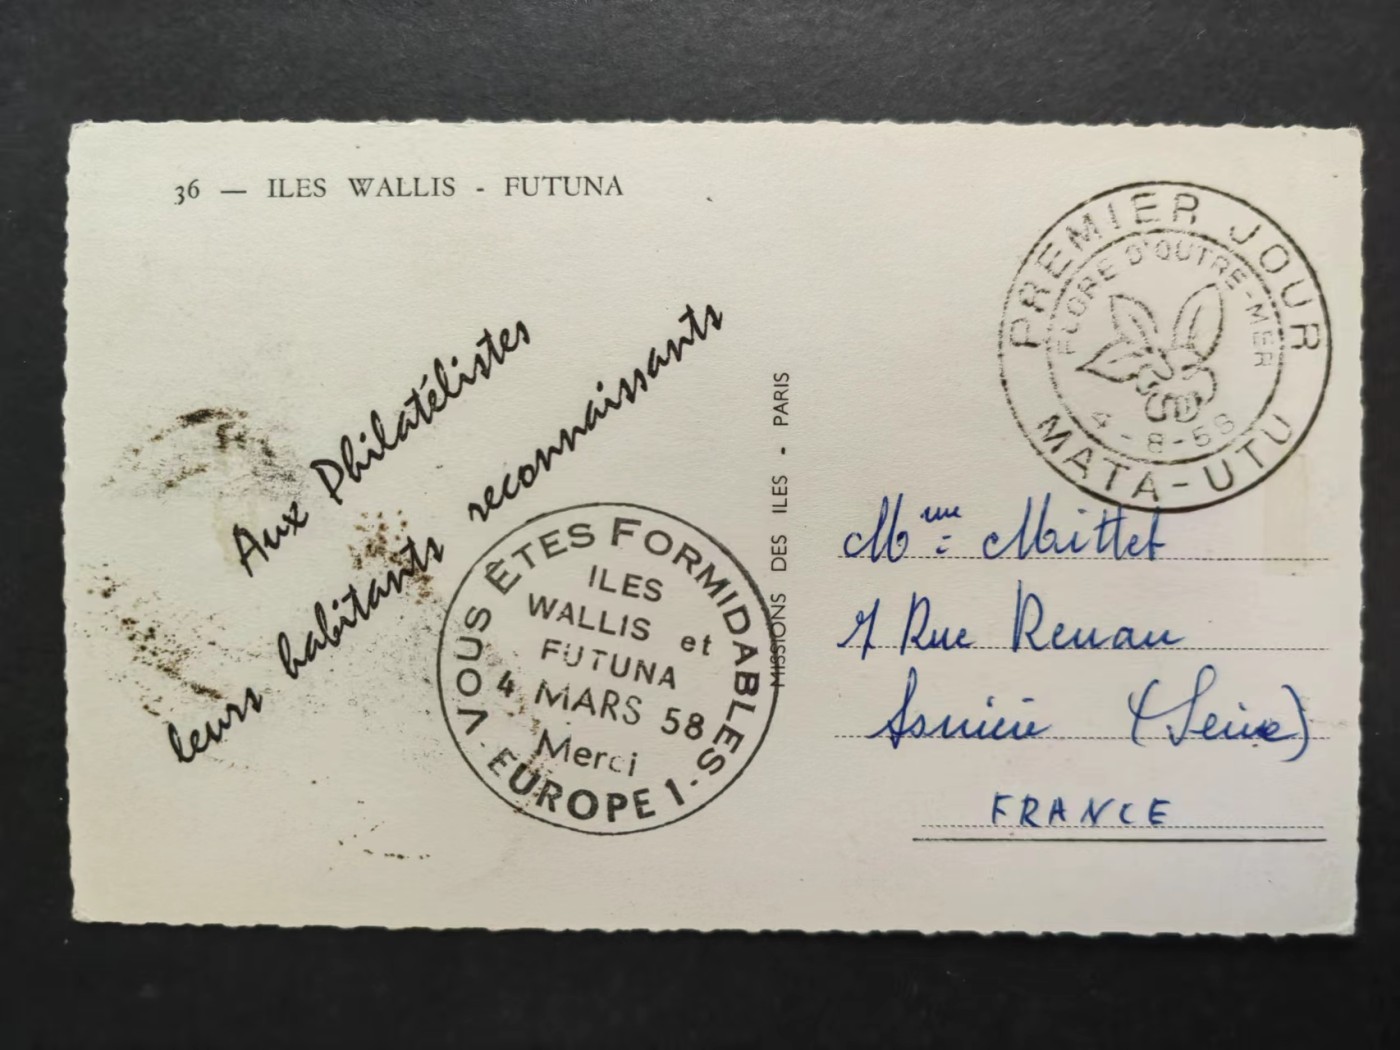 36 — ILES WALLIS - FUTUNA
Aux Philatélistes
leurs habitants reconnaissants
VOUS ÊTES FORMIDABLES
ILES
WALLIS et
FUTUNA
4 MARS 58
Merci
EUROPE 1
MISSIONS DES ILES - PARIS
PREMIER JOUR
FLORE D'OUTRE-MER
4-8-58
MATA-UTU
Mme : Mittet
7 Rue Renan
(Seine)
FRANCE